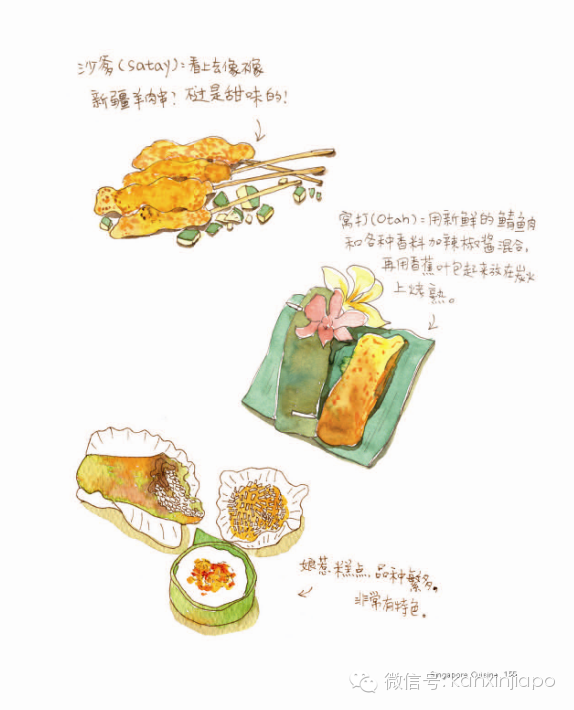 沙爹(satay):看上去像不像
新疆羊肉串?不过是甜味的!
窝打(Otah):用新鲜的鲭鱼肉
和各种香料加辣椒酱混合,
再用香蕉叶包起来放在炭火
上烤熟。
娘惹糕点,品种繁多。
非常有特色。
Singapore Cuisine 155
微信号: kanxinjiapo